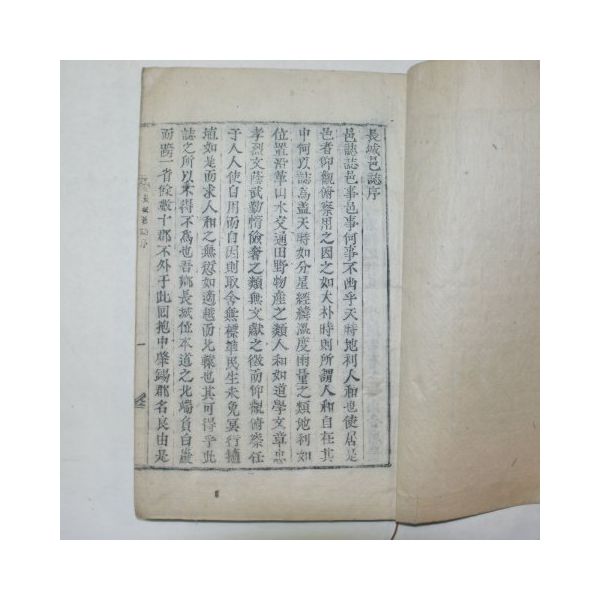 長城邑誌序
邑誌誌邑事邑事何事不西乎天時地利人和也使居是
邑者仰觀俯察用之因之如大朴時則所謂人和自在其
中何以誌爲盖天時如分星經緯溫度雨量之類地利如
位置沿革山水交通田野物產之類人和如道學文章忠
孝烈文蔭武勤惰儉奢之類無文獻之徵而仰觀俯察任
于人人使自用而自因則取舍無標準民生未免冥行擿
埴如是而求人和之無愆如適越而北轅也其可得乎此
誌之所以不得不爲也吾鄕長城位本道之北端負白巖
而蹲一省餘數十郡不外于此回抱中肇錫郡名良由是